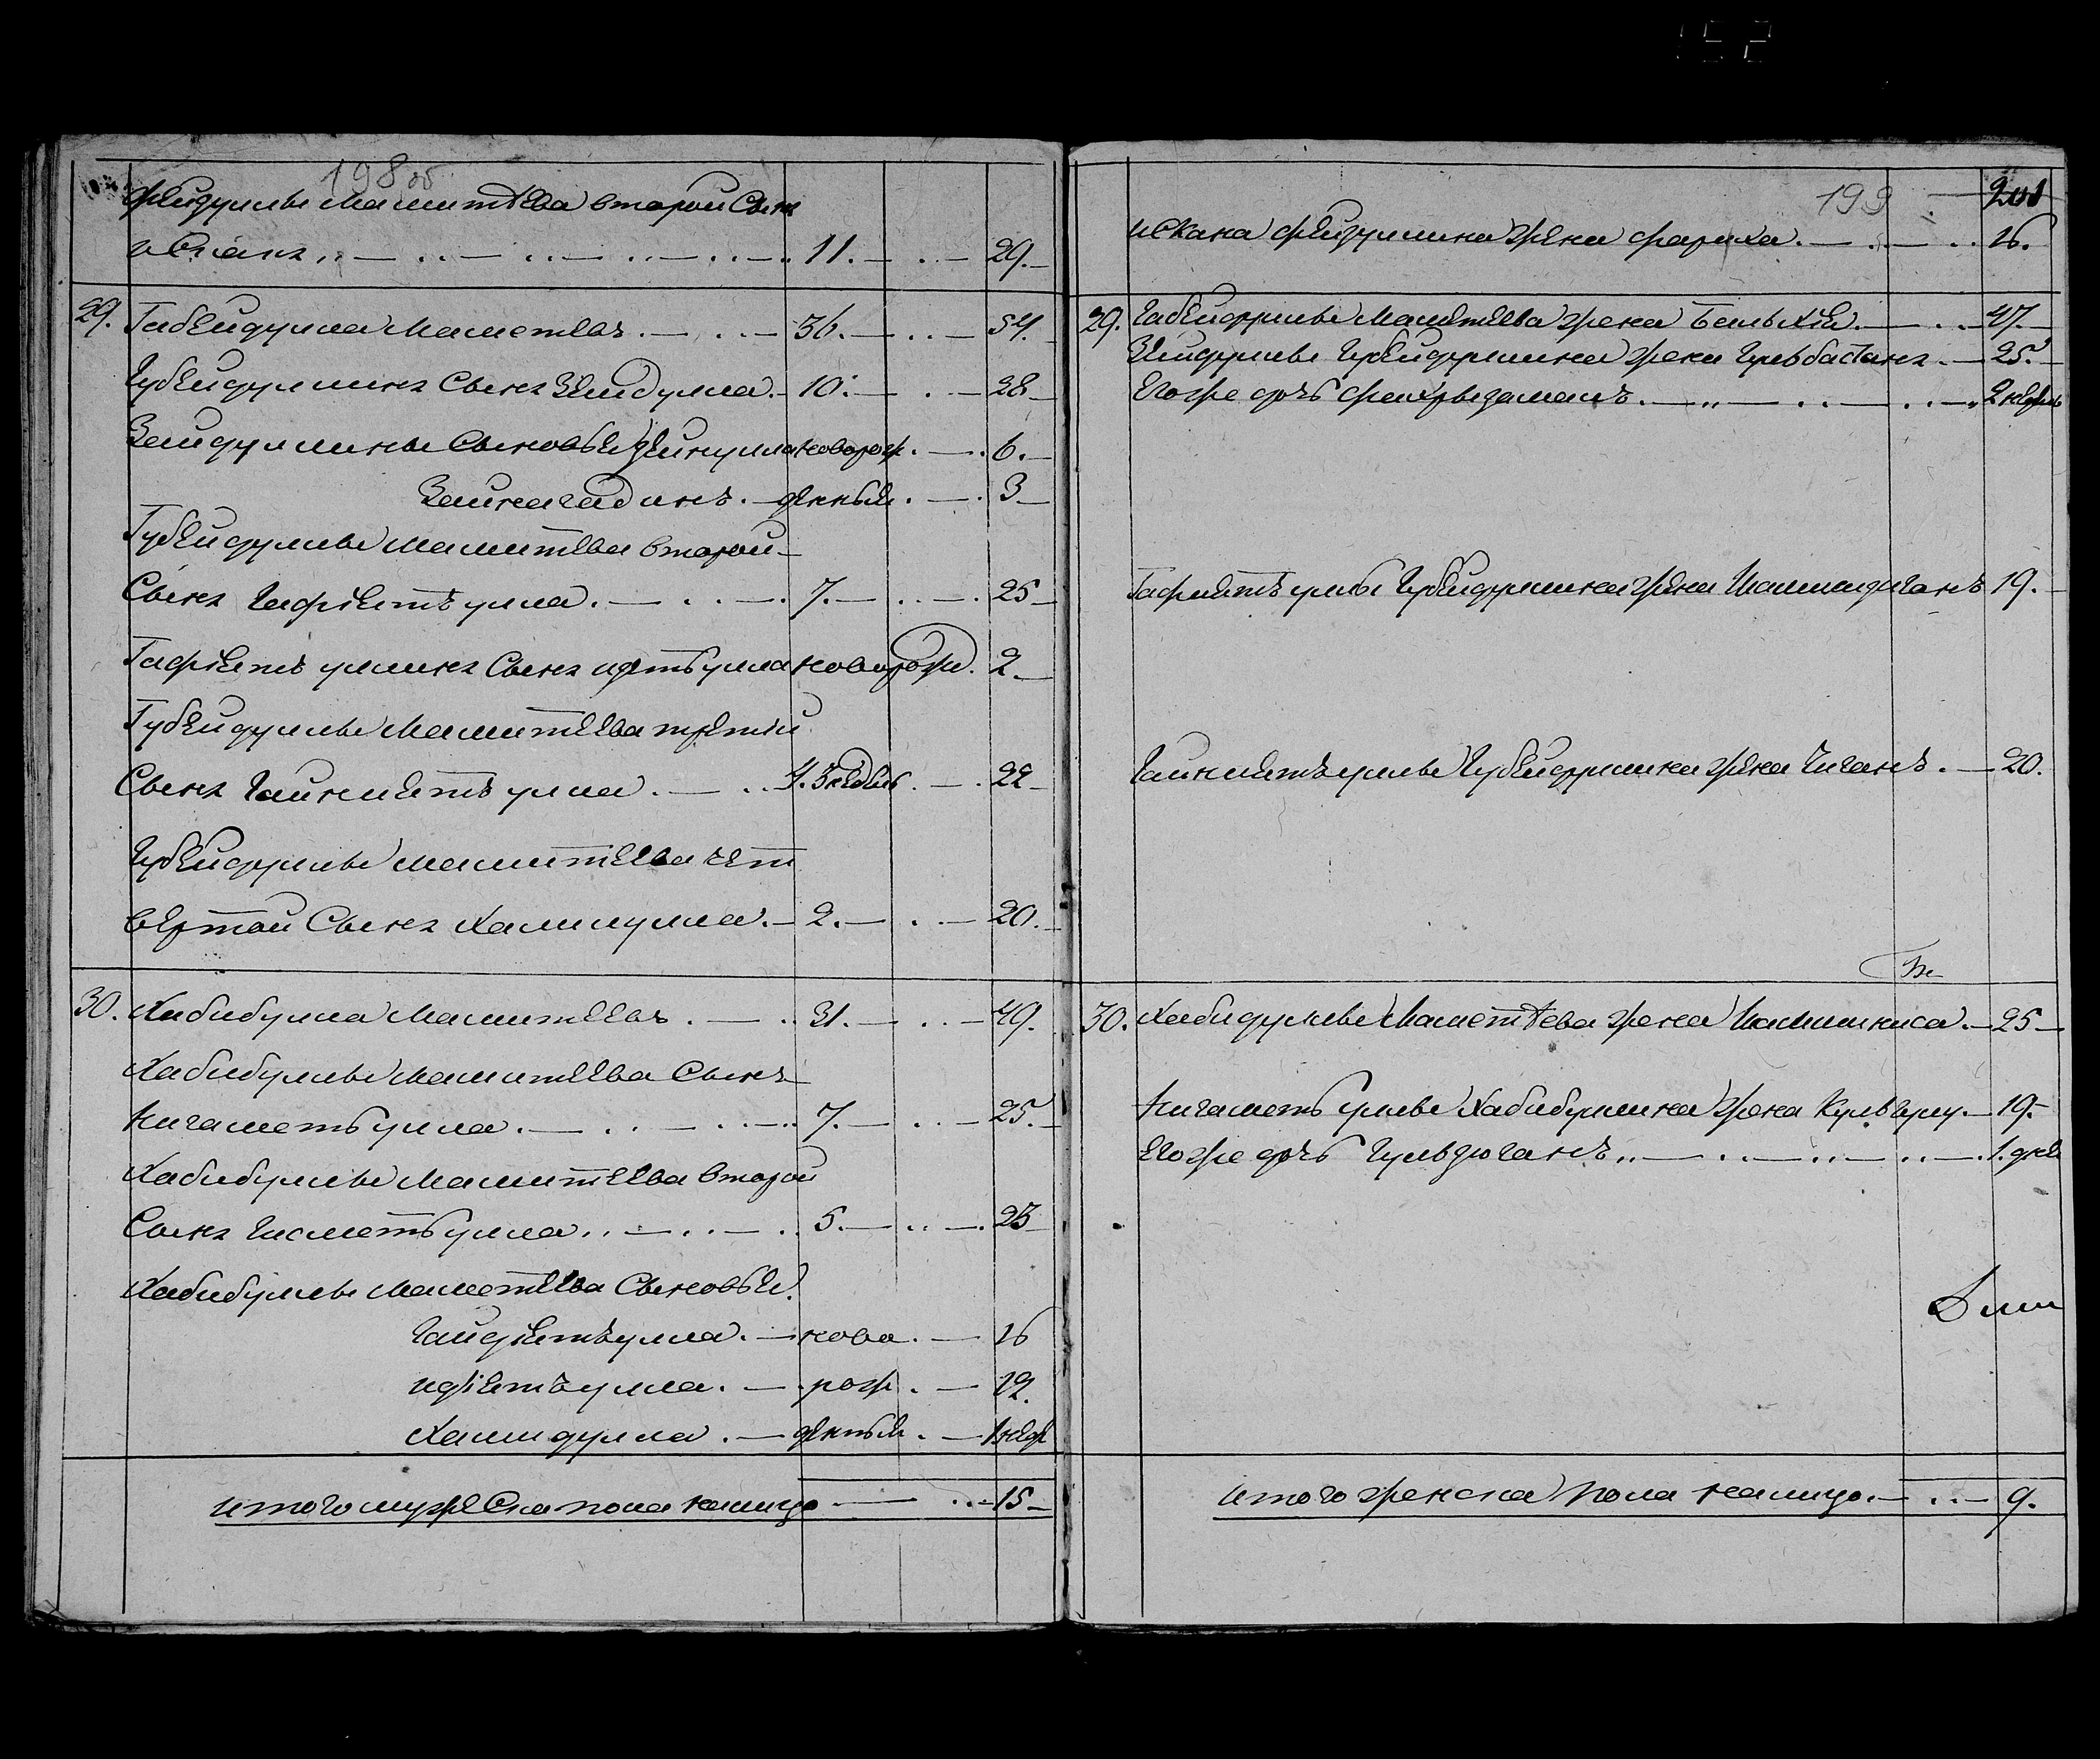 198 об.
Фейдуллы Маметева второй Сынъ
исканъ 11. 29.
29. Габейдулла Маметевъ 36. 54.
Губейдуллинъ Сынъ Зейдулла 10. 28
Зейдуллины Сыновья Зейнулла новорож 6.
Зайнагадинъ денныя 3
Губейдуллы Маметева второй
Сынъ Гафиетъулла 7. 25
Гафиетъуллинъ Сынъ идетъулла новорожд. 2.
Губейдуллы Маметева третiй
Сынъ Гайниетъулла 4. 22
Губейдуллы Маметева чет
вертой Сынъ Халиулла 2. 20.
30. Хабибулла Маметевъ 31. 49.
Хабибуллы Маметева Сынъ
Нигаметъулла 7. 25.
Хабибуллы Маметева второй
Сынъ Гисметъулла 5. 23
Хабибуллы Маметева Сыновья
Гайдiетъулла ново 16
идiетъулла рож 12.
Хамидулла денныя 1 нед
итого мужеска пола налицо 15
199 201
искана Фейдуллина жена фариха 26.
29. Габейдуллы Маметева жена Бальхiя 47.
Зейдуллы Губейдуллина жена Гульбастанъ 25.
Его же дочь Фахрыдаманъ 2 недель
Гафиетъуллы Губейдуллина жена Шамшидиганъ 19.
Гайниетъуллы Губейдуллина жена Чиганъ 20.
30. Хабидуллы Маметева жена Шамшиниса 25
Нигаметъуллы Хабибуллина жена 19.
Его же дочь Гульзюганъ 1. дне
итого женска пола налицо 9.